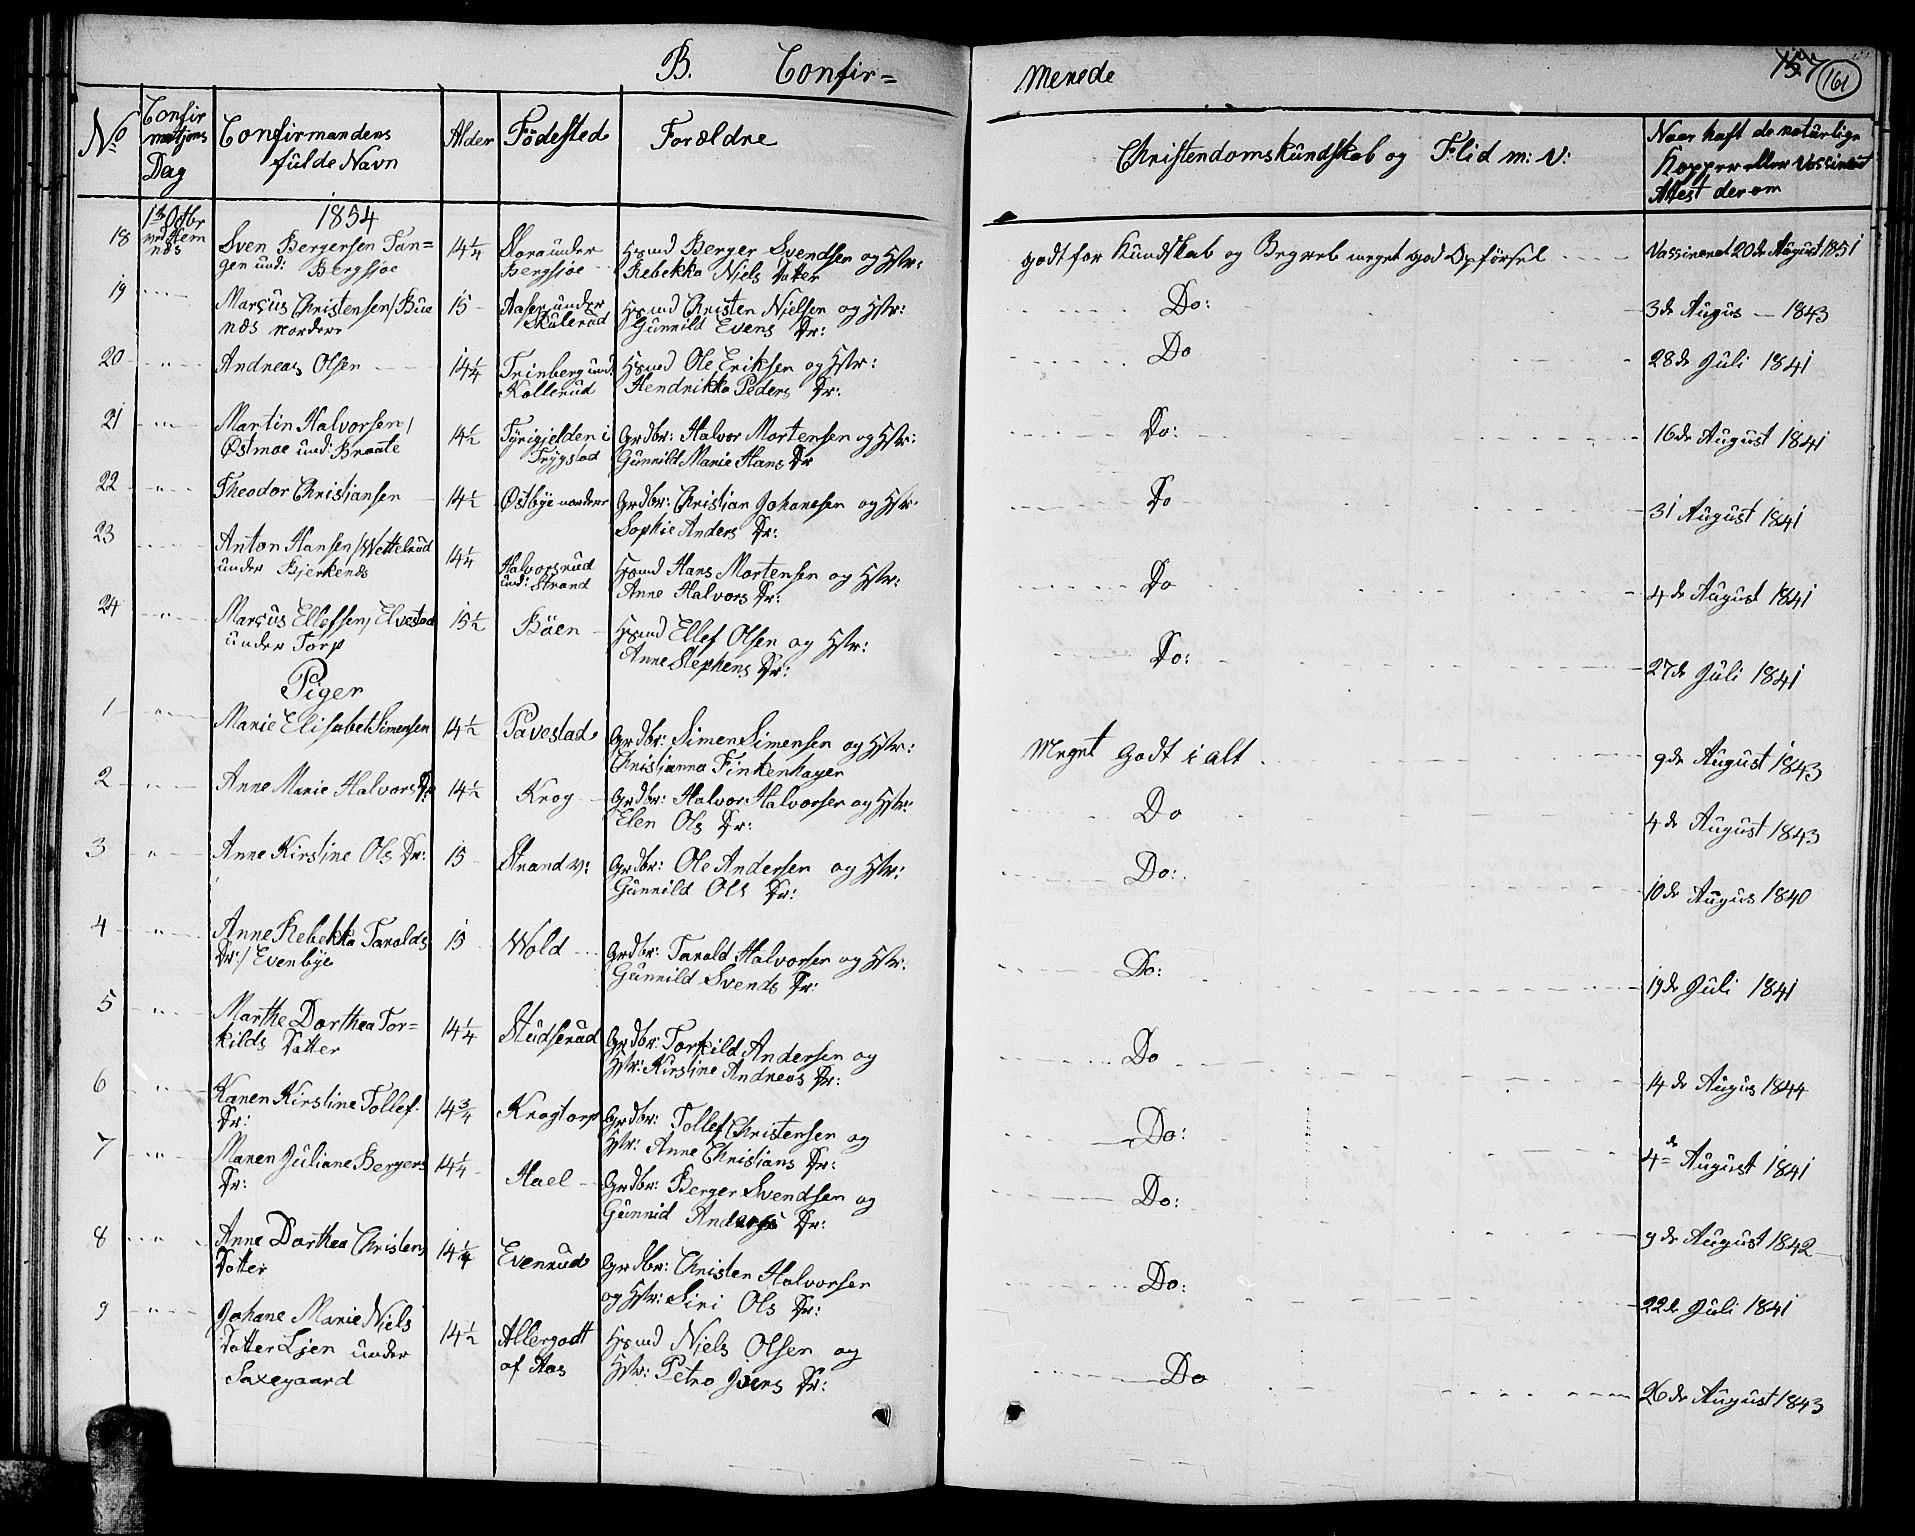 B. Confir=
Menede
157
161
No
Confir
matjons
Dag
Confirmandens
fulde Navn
Alder
Födested
Forældre
Christendomskundskab og Flid m: v:
Naar haft de natúrlige
Kopper eller Vassineret
Attest derom
1854
18 1st Octbr ved Hem
næs
Sven Bergersen Tan=
gen und: Bergsjøe
14 1/4
Mora under
Bergsjøe
Hsmd Berger Svendsen og Hstr:
Rebekka Niels Datter
godt for Kundskab og Begreb meget god Opførsel
Vassineret 20de August 1851
19 Marcus Christensen/Bue
næs nordere
15
Aaser under
Skulerud
Hsmd Christen Nielsen og Hstr:
Gunnild Evens Dr:
Do:
3de Augus 1843
20 Andreas Olsen
14 1/4
Trinberg und:
Kollerud
Hsmd Ole Eriksen og Hstr:
Hendrikka Peders Dr:
Do
28de Juli 1841
21 Martin Halvorsen/
Østmoe und: Braate
14 1/2
Tyrigjelden i
Trygstad
Grdbr: Halvor Mortensen og Hstr:
Gunnild Marie Hans Dr
Do:
16de August 1841
22 Theodor Christiansen
14 1/2
Østbye nordere
Grdbr: Christian Johanesen og Hstr:
Sophie Anders Dr:
Do
31 August 1841
23 Anton Hansen/Wettelrud
under Bjerkenæs
14 1/4
Halvorsrud
und: Strand
Hsmd Hans Mortensen og Hstr:
Anne Halvors Dr:
Do
4de August 1841
24 Marcus Ellefsen, Elvestad
under Torp
15 1/2
Böen
Hsmd Ellef Olsen og Hstr:
Anne Stephens Dr:
Do:
27de Juli 1841
Piger
1 Marie Elisabet Simensen
14 1/2
Pavestad
Grdbr: Simen Simensen og Hstr:
Christianna Finkenhagen
Meget Godt i alt
9de August 1843
2 Anne Marie Halvors Dr
14 1/2
Krog
Grdbr: Halvor Halvorsen og Hstr:
Elen Ols Dr:
Do
4de August 1843
3 Anne Kirstine Ols Dr:
15
Strand v:
Grdbr: Ole Andersen og Hstr:
Gunnild Ols Dr:
Do:
10de Augus 1840
4 Anne Rebekka Taralds
Dr:/Evenbye
15
Wold
Grdbr: Tarald Halvorsen og Hstr:
Gunnild Svends Dr:
Do:
19de Juli 1841
5 Marthe Dorthea Tor=
kilds Datter
14 1/4
Studserud
Grdbr: Torkild Andersen og
Hstr: Kirstine Andreas Dr:
Do
14de Augus 1844
6 Karen Kirstine Tollef
Dr:
14 3/4
Krogtorp
Grdbr: Tollef Christensen og
Hstr: Anne Christians Dr:
Do:
4de August 1841
7 Maren Juliane Bergers
Dr:
14 1/4
Hael
Grdbr: Berger Svendsen og
Gunnid Anders Dr:
Do:
9de August 1842
8 Anne Dorthea Christens
Datter
14 1/4
Evenrud
Grdbr: Christen Halvorsen
og Hstr: Siri Ols Dr:
Do:
22de Juli 1841
9 Johane Marie Niels
Datter Lien under
Saxegaard
14 1/2
Allergodt
af Aas
Hsmd Niels Olsen og
Hstr: Petra Jvers Dr:
Do
26de August 1843